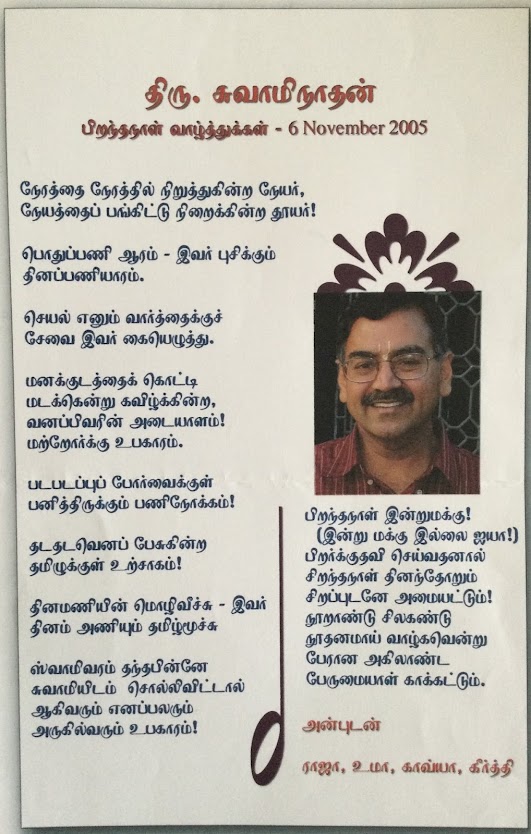 திரு. சுவாமிநாதன்
பிறந்தநாள் வாழ்த்துக்கள் - 6 November 2005
நேரத்தை நேரத்தில் நிறுத்துகின்ற நேயர்,
நேயத்தைப் பங்கிட்டு நிறைக்கின்ற தூயர்!
பொதுப்பணி ஆரம் - இவர் புசிக்கும்
தினப்பணியாரம்.
செயல் எனும் வார்த்தைக்குச்
சேவை இவர் கையெழுத்து.
மனக்குடத்தைக் கொட்டி
மடக்கென்று கவிழ்க்கின்ற,
வனப்பிவரின் அடையாளம்!
மற்றோர்க்கு உபகாரம்.
படபடப்புப் போர்வைக்குள்
பனித்திருக்கும் பணிநோக்கம்!
தடதடவெனப் பேசுகின்ற
தமிழுக்குள் உற்சாகம்!
தினமணியின் மொழிவீச்சு - இவர்
தினம் அணியும் தமிழ்மூச்சு
ஸ்வாமிவரம் தந்தபின்னே
சுவாமியிடம் சொல்லிவிட்டால்
ஆகிவரும் எனப்பலரும்
அருகில்வரும் உபகாரம்!
பிறந்தநாள் இன்றுமக்கு!
(இன்று மக்கு இல்லை ஐயா!)
பிறர்க்குதவி செய்வதனால்
சிறந்தநாள் தினந்தோறும்
சிறப்புடனே அமையட்டும்!
நூறாண்டு சிலகண்டு
நூதனமாய் வாழ்கவென்று
பேரான அகிலாண்ட
பேருமையாள் காக்கட்டும்.
அன்புடன்
ராஜா, உமா, காவ்யா, கீர்த்தி